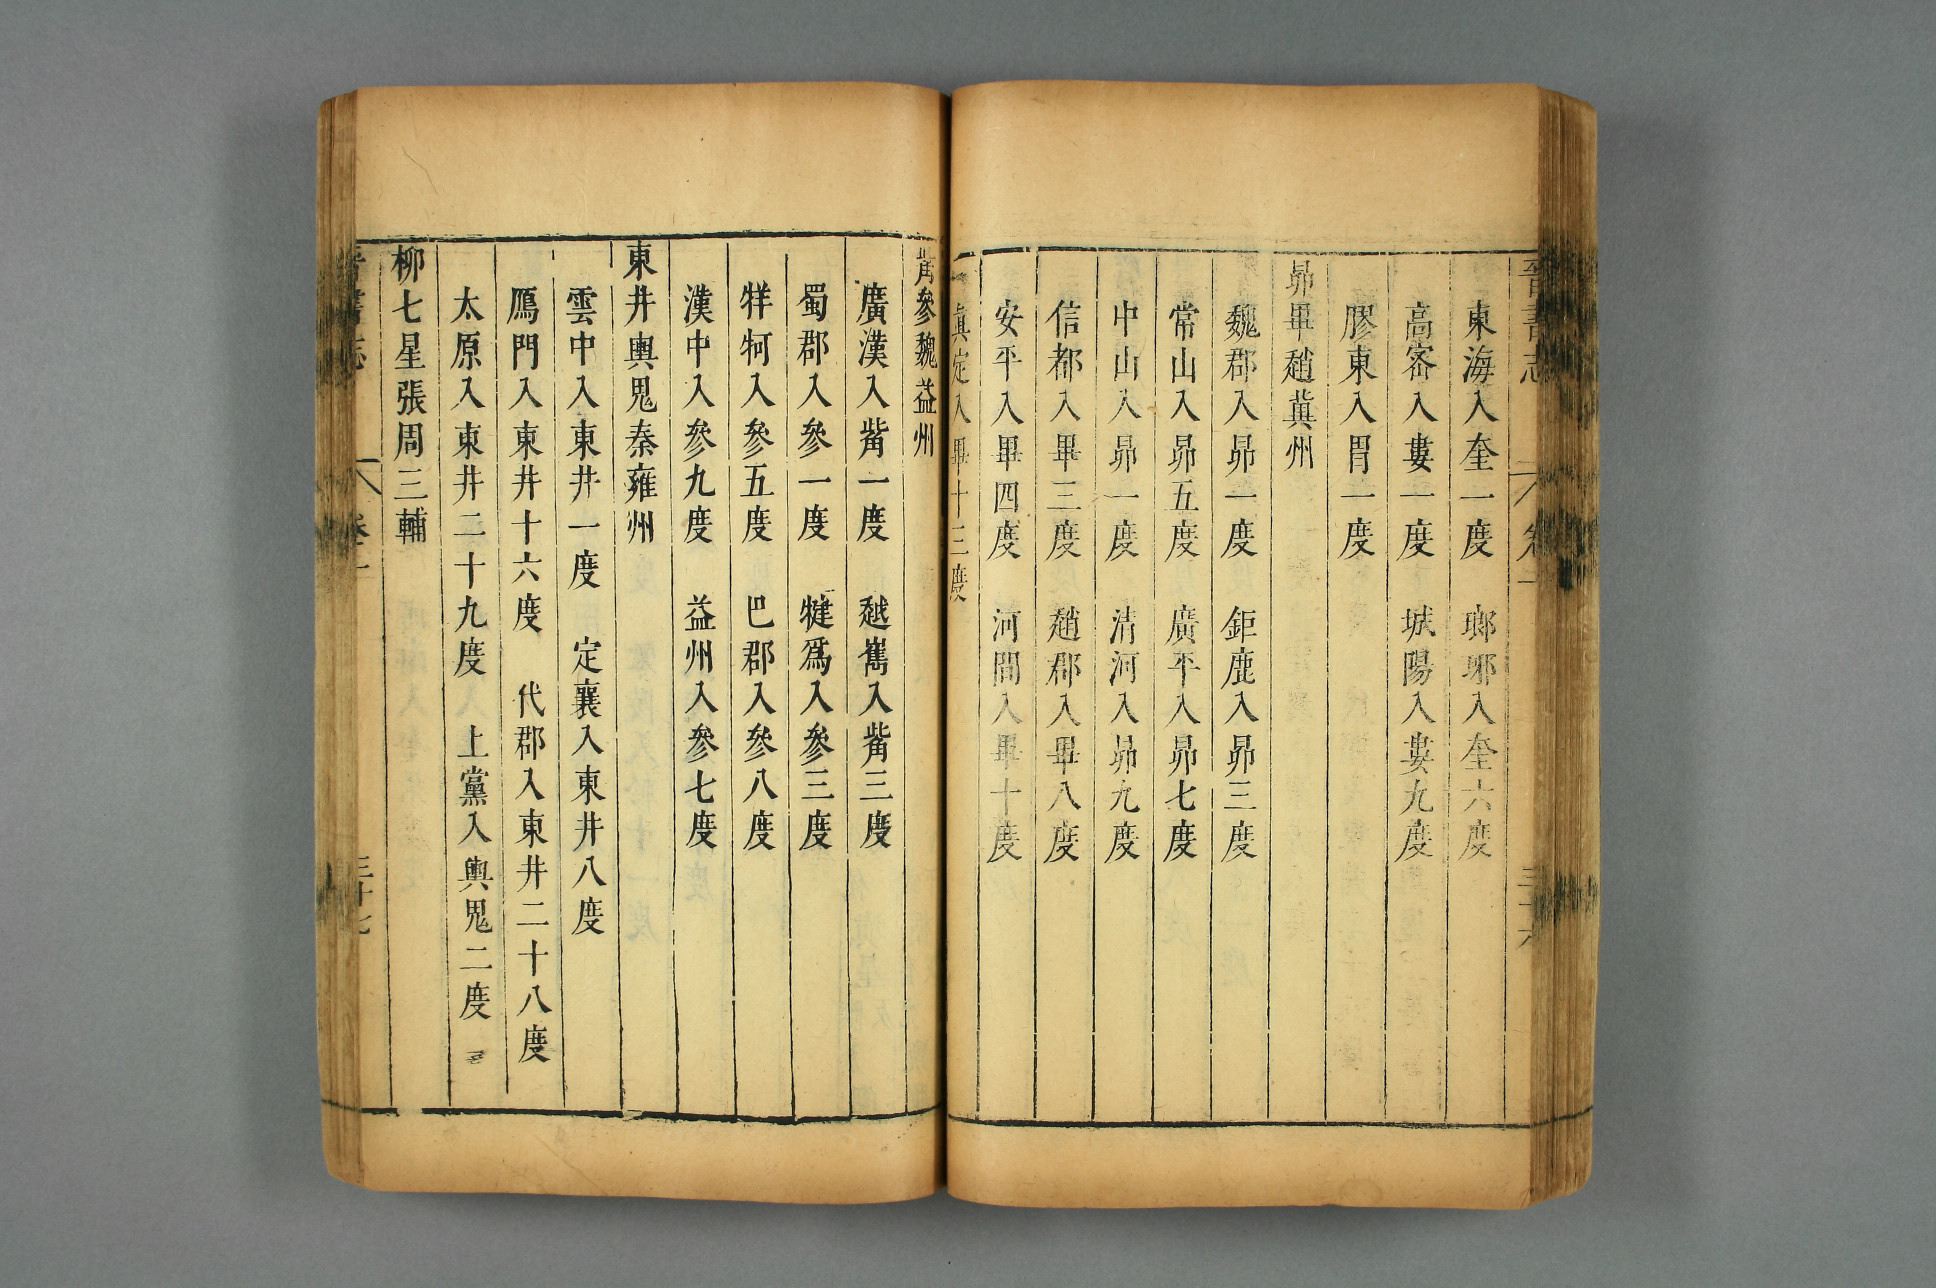 晉書志 卷一 三十六
東海入奎一度 瑯琊入奎六度
高密入婁一度 城陽入婁九度
膠東入胃一度
昴畢趙冀州
魏郡入昴一度 鉅鹿入昴三度
常山入昴五度 廣平入昴七度
中山入昴一度 清河入昴九度
信都入畢三度 趙郡入畢八度
安平入畢四度 河間入畢十度
眞定入畢十三度
觜參魏益州
廣漢入觜一度 越雟入觜三度
蜀郡入參一度 犍爲入參三度
牂牁入參五度 巴郡入參八度
漢中入參九度 益州入參七度
東井輿鬼秦雍州
雲中入東井一度 定襄入東井八度
鴈門入東井十六度 代郡入東井二十八度
太原入東井二十九度 上黨入輿鬼二度
柳七星張周三輔
晉書志 卷一 三十七